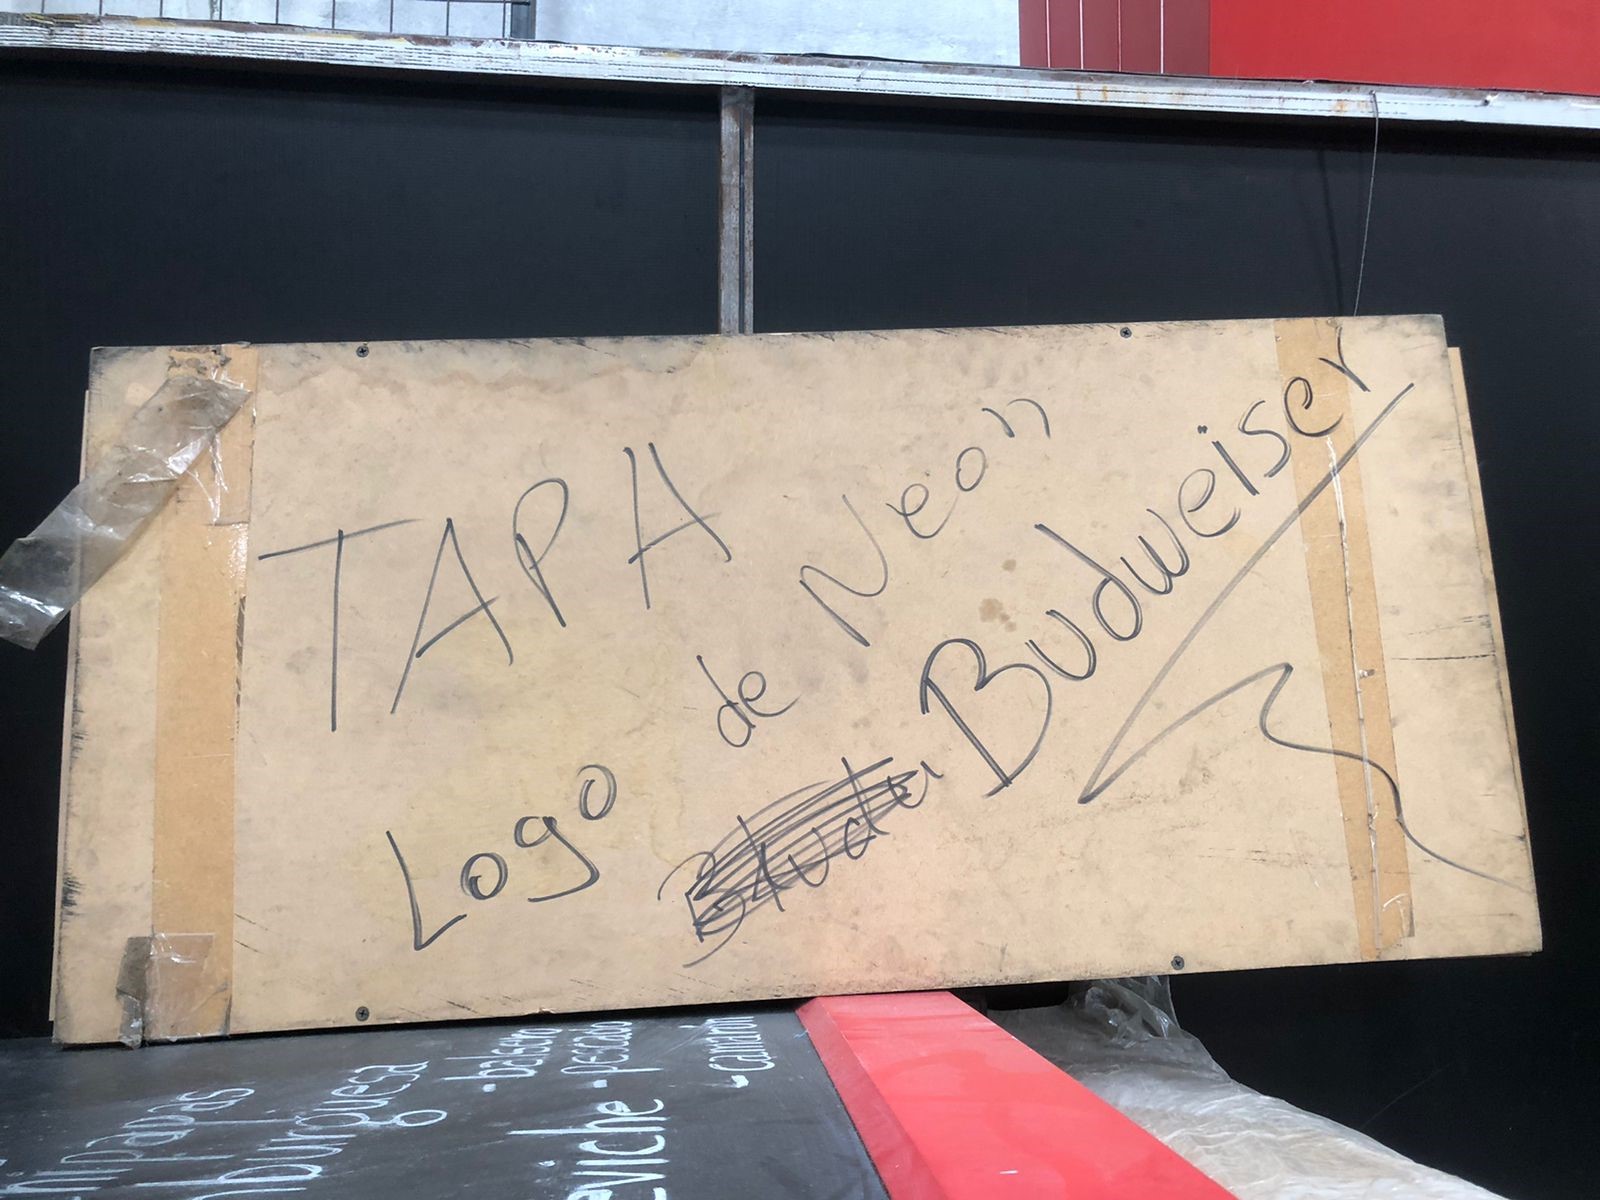 TAPA
Logo de Neon
Budweiser
papas
burguesa
eviche - pescado
- camarón